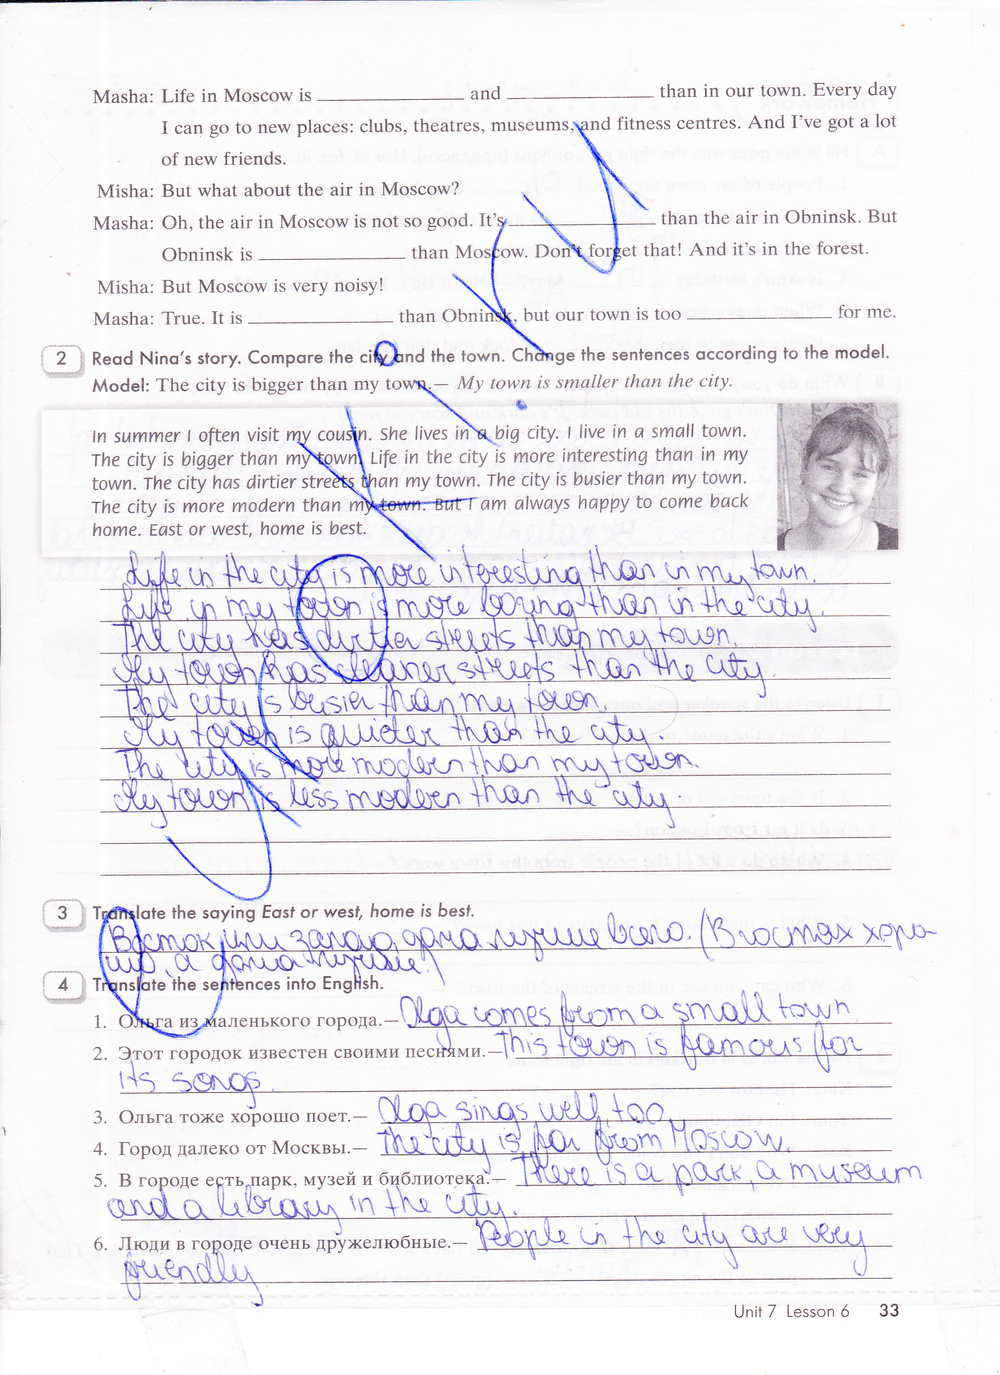 Masha: Life in Moscow is ______ and ______ than in our town. Every day
I can go to new places: clubs, theatres, museums, and fitness centres. And I've got a lot
of new friends.
Misha: But what about the air in Moscow?
Masha: Oh, the air in Moscow is not so good. It's ______ than the air in Obninsk. But
Obninsk is ______ than Moscow. Don't forget that! And it's in the forest.
Misha: But Moscow is very noisy!
Masha: True. It is ______ than Obninsk, but our town is too ______ for me.
2 Read Nina's story. Compare the city and the town. Change the sentences according to the model.
Model: The city is bigger than my town.— My town is smaller than the city.
In summer I often visit my cousin. She lives in a big city. I live in a small town.
The city is bigger than my town. Life in the city is more interesting than in my
town. The city has dirtier streets than my town. The city is busier than my town.
The city is more modern than my town. But I am always happy to come back
home. East or west, home is best.
Life in the city is more interesting than in my town.
Life in my town is more boring than in the city.
The city has dirtier streets than my town.
My town has cleaner streets than the city.
The city is busier than my town
My town is quieter than the city.
The city is more modern than my town.
My town is less modern than the city.
3 Translate the saying East or west, home is best.
Восток или запад, дома лучше всего. (В гостях хоро-
шо, а дома лучше.)
4 Translate the sentences into English.
1. Ольга из маленького города.— Olga comes from a small town
2. Этот городок известен своими песнями.— This town is famous for
its songs.
3. Ольга тоже хорошо поет.— Olga sings well, too.
4. Город далеко от Москвы.— The city is far from Moscow.
5. В городе есть парк, музей и библиотека.— There is a park, a museum
and a library in the city.
6. Люди в городе очень дружелюбные.— People in the city are very
friendly
Unit 7 Lesson 6 33